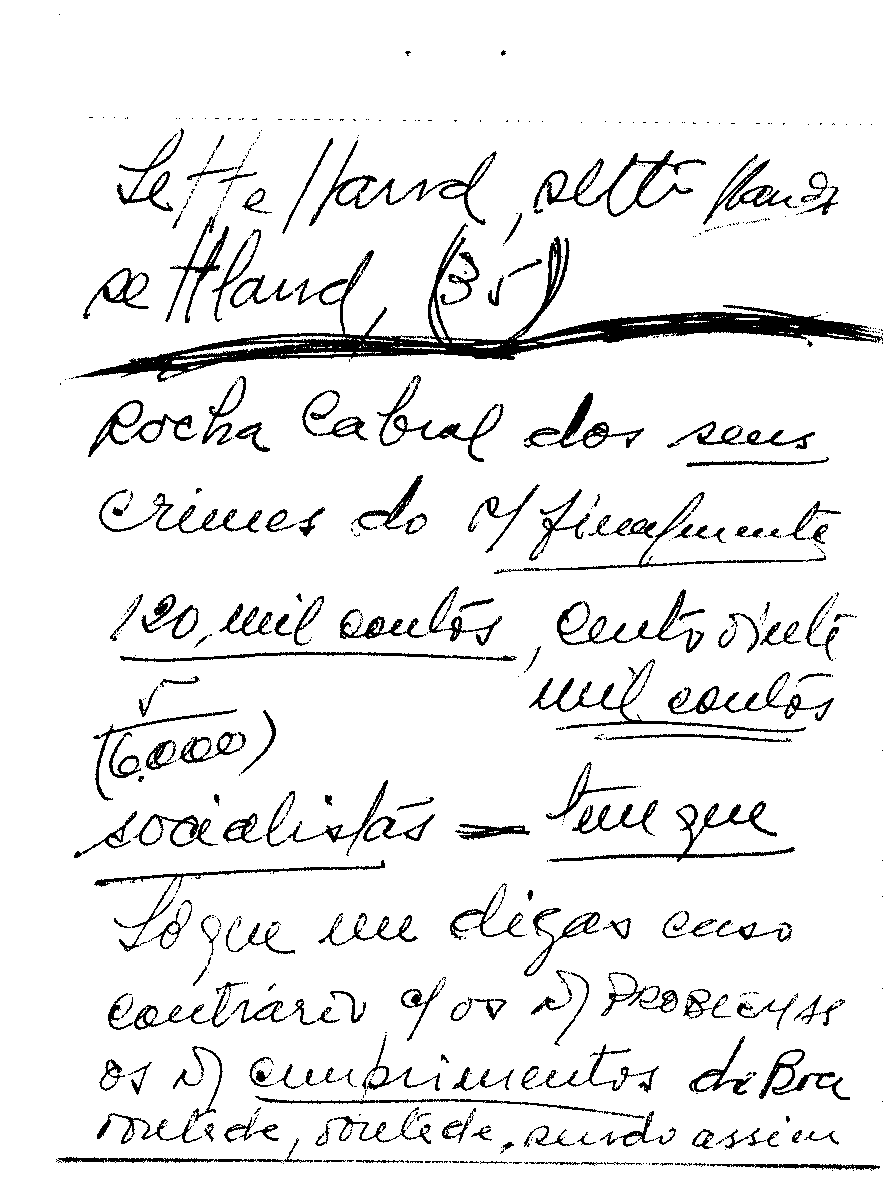 SetteHand, setti Hands
settland, (35)
Rocha Cabral dos seus
crimes do s/ finalmente
120, mil contos, cento vinte
mil contos
5
(6.000)
socialistas = tem que
Sò que me digas caso
contrário c/ os N) PROBLEMAS
os N) cumprimentos de Boa
vontede, vontede, sendo assim